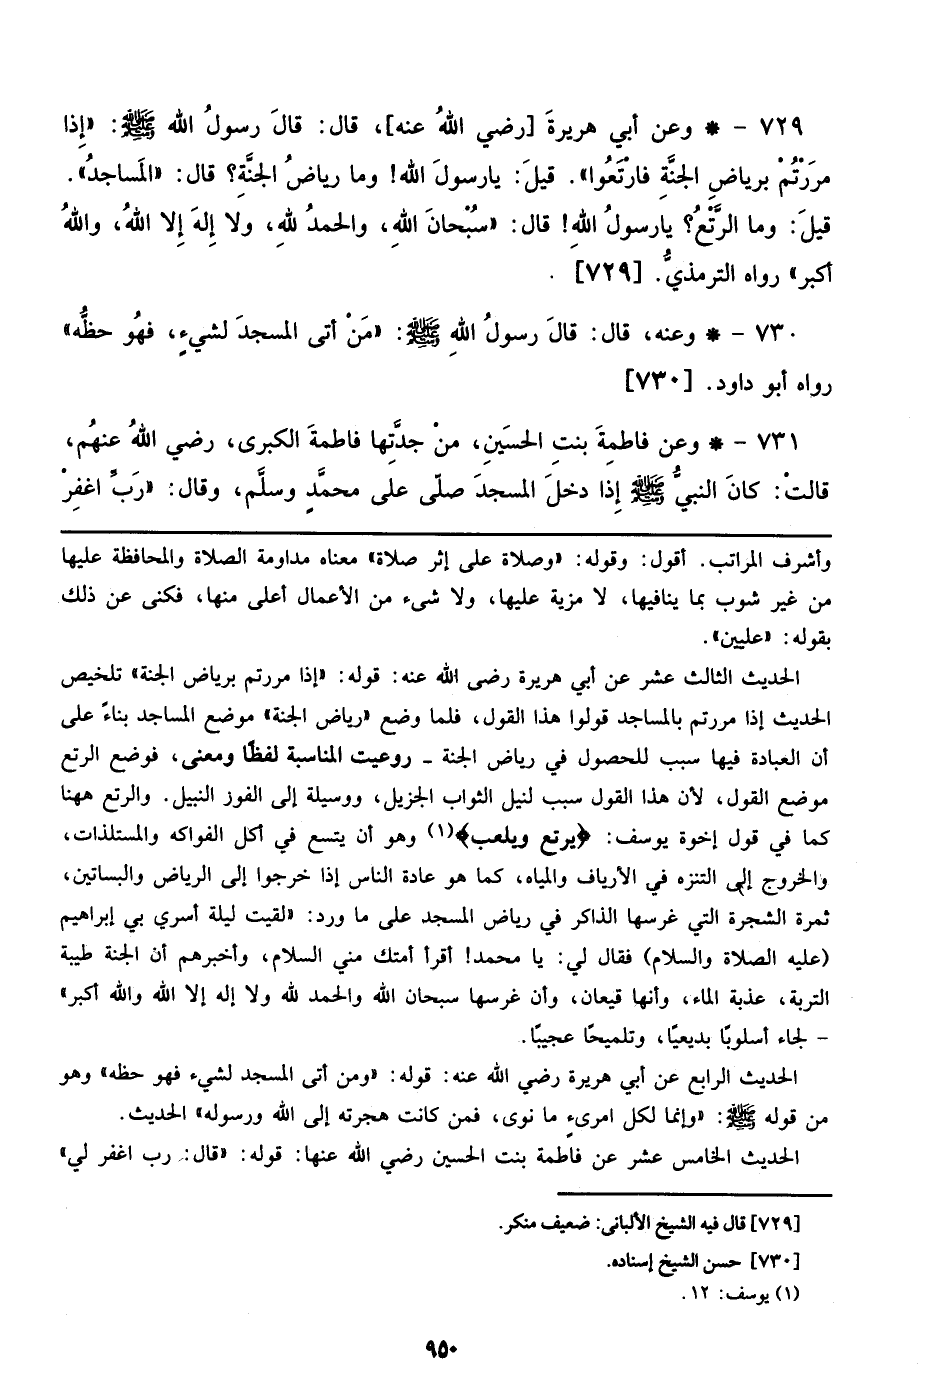 ٧٢٩ – * وعن أبي هريرةَ [رضي اللهُ عنه]، قال: قالَ رسولُ الله ﷺ: «إِذا
مرَرْتُمْ برياضِ الجنَّةِ فارْتَعُوا». قيلَ: يارسولَ الله! وما رياضُ الجنَّةِ؟ قال: «المَساجدُ».
قيلَ: وما الرَّتْعُ؟ يارسولُ اللهِ! قال: «سُبْحانَ اللهِ، والحمدُ للهِ، ولا إِلهَ إِلا اللهُ، واللهُ
أكبر» رواه الترمذيُّ. [٧٢٩]
٧٣٠ – * وعنه، قال: قالَ رسولُ اللهِ ﷺ: «مَنْ أتى المسجدَ لشيءٍ، فهُو حظُّه»
رواه أبو داود. [٧٣٠]
٧٣١ – * وعن فاطمِةَ بنتِ الحسَينِ، منْ جدَّتِها فاطمةَ الكبرى، رضي اللهُ عنهُم،
قالتْ: كانَ النبيُّ ﷺ إِذا دخلَ المسجدَ صلّى على محمَّدٍ وسلَّم، وقال: «ربِّ اغفِرْ
وأشرف المراتب. أقول: وقوله: «وصلاة على إثر صلاة» معناه مداومة الصلاة والمحافظة عليها
من غير شوب بما ينافيها، لا مزية عليها، ولا شىء من الأعمال أعلى منها، فكنى عن ذلك
بقوله: «عليين».
الحديث الثالث عشر عن أبي هريرة رضى الله عنه: قوله: «إذا مررتم برياض الجنة» تلخيص
الحديث إذا مررتم بالمساجد قولوا هذا القول، فلما وضع «رياض الجنة» موضع المساجد بناءً على
أن العبادة فيها سبب للحصول في رياض الجنة – روعيت المناسبة لفظًا ومعنى، فوضع الرتع
موضع القول، لأن هذا القول سبب لنيل الثواب الجزيل، ووسيلة إلى الفوز النبيل. والرتع ههنا
كما في قول إخوة يوسف: ﴿يرتع ويلعب﴾(١) وهو أن يتسع في أكل الفواكه والمستلذات،
والخروج إلى التنزه في الأرياف والمياه، كما هو عادة الناس إذا خرجوا إلى الرياض والبساتين،
ثمرة الشجرة التي غرسها الذاكر في رياض المسجد على ما ورد: «لقيت ليلة أسري بي إبراهيم
(عليه الصلاة والسلام) فقال لي: يا محمد! أقرأ أمتك مني السلام، وأخبرهم أن الجنة طيبة
التربة، عذبة الماء، وأنها قيعان، وأن غرسها سبحان الله والحمد لله ولا إله إلا الله والله أكبر»
– لجاء أسلوبًا بديعيًا، وتلميحًا عجيبًا.
الحديث الرابع عن أبي هريرة رضي الله عنه: قوله: «ومن أتى المسجد لشيء فهو حظه» وهو
من قوله ﷺ: «وإنما لكل امرىءٍ ما نوى، فمن كانت هجرته إلى الله ورسوله» الحديث.
الحديث الخامس عشر عن فاطمة بنت الحسين رضي الله عنها: قوله: «قال: رب اغفر لي»
[٧٢٩] قال فيه الشيخ الألبانى: ضعيف منكر.
[٧٣٠] حسن الشيخ إسناده.
(١) يوسف: ١٢.
٩٥٠